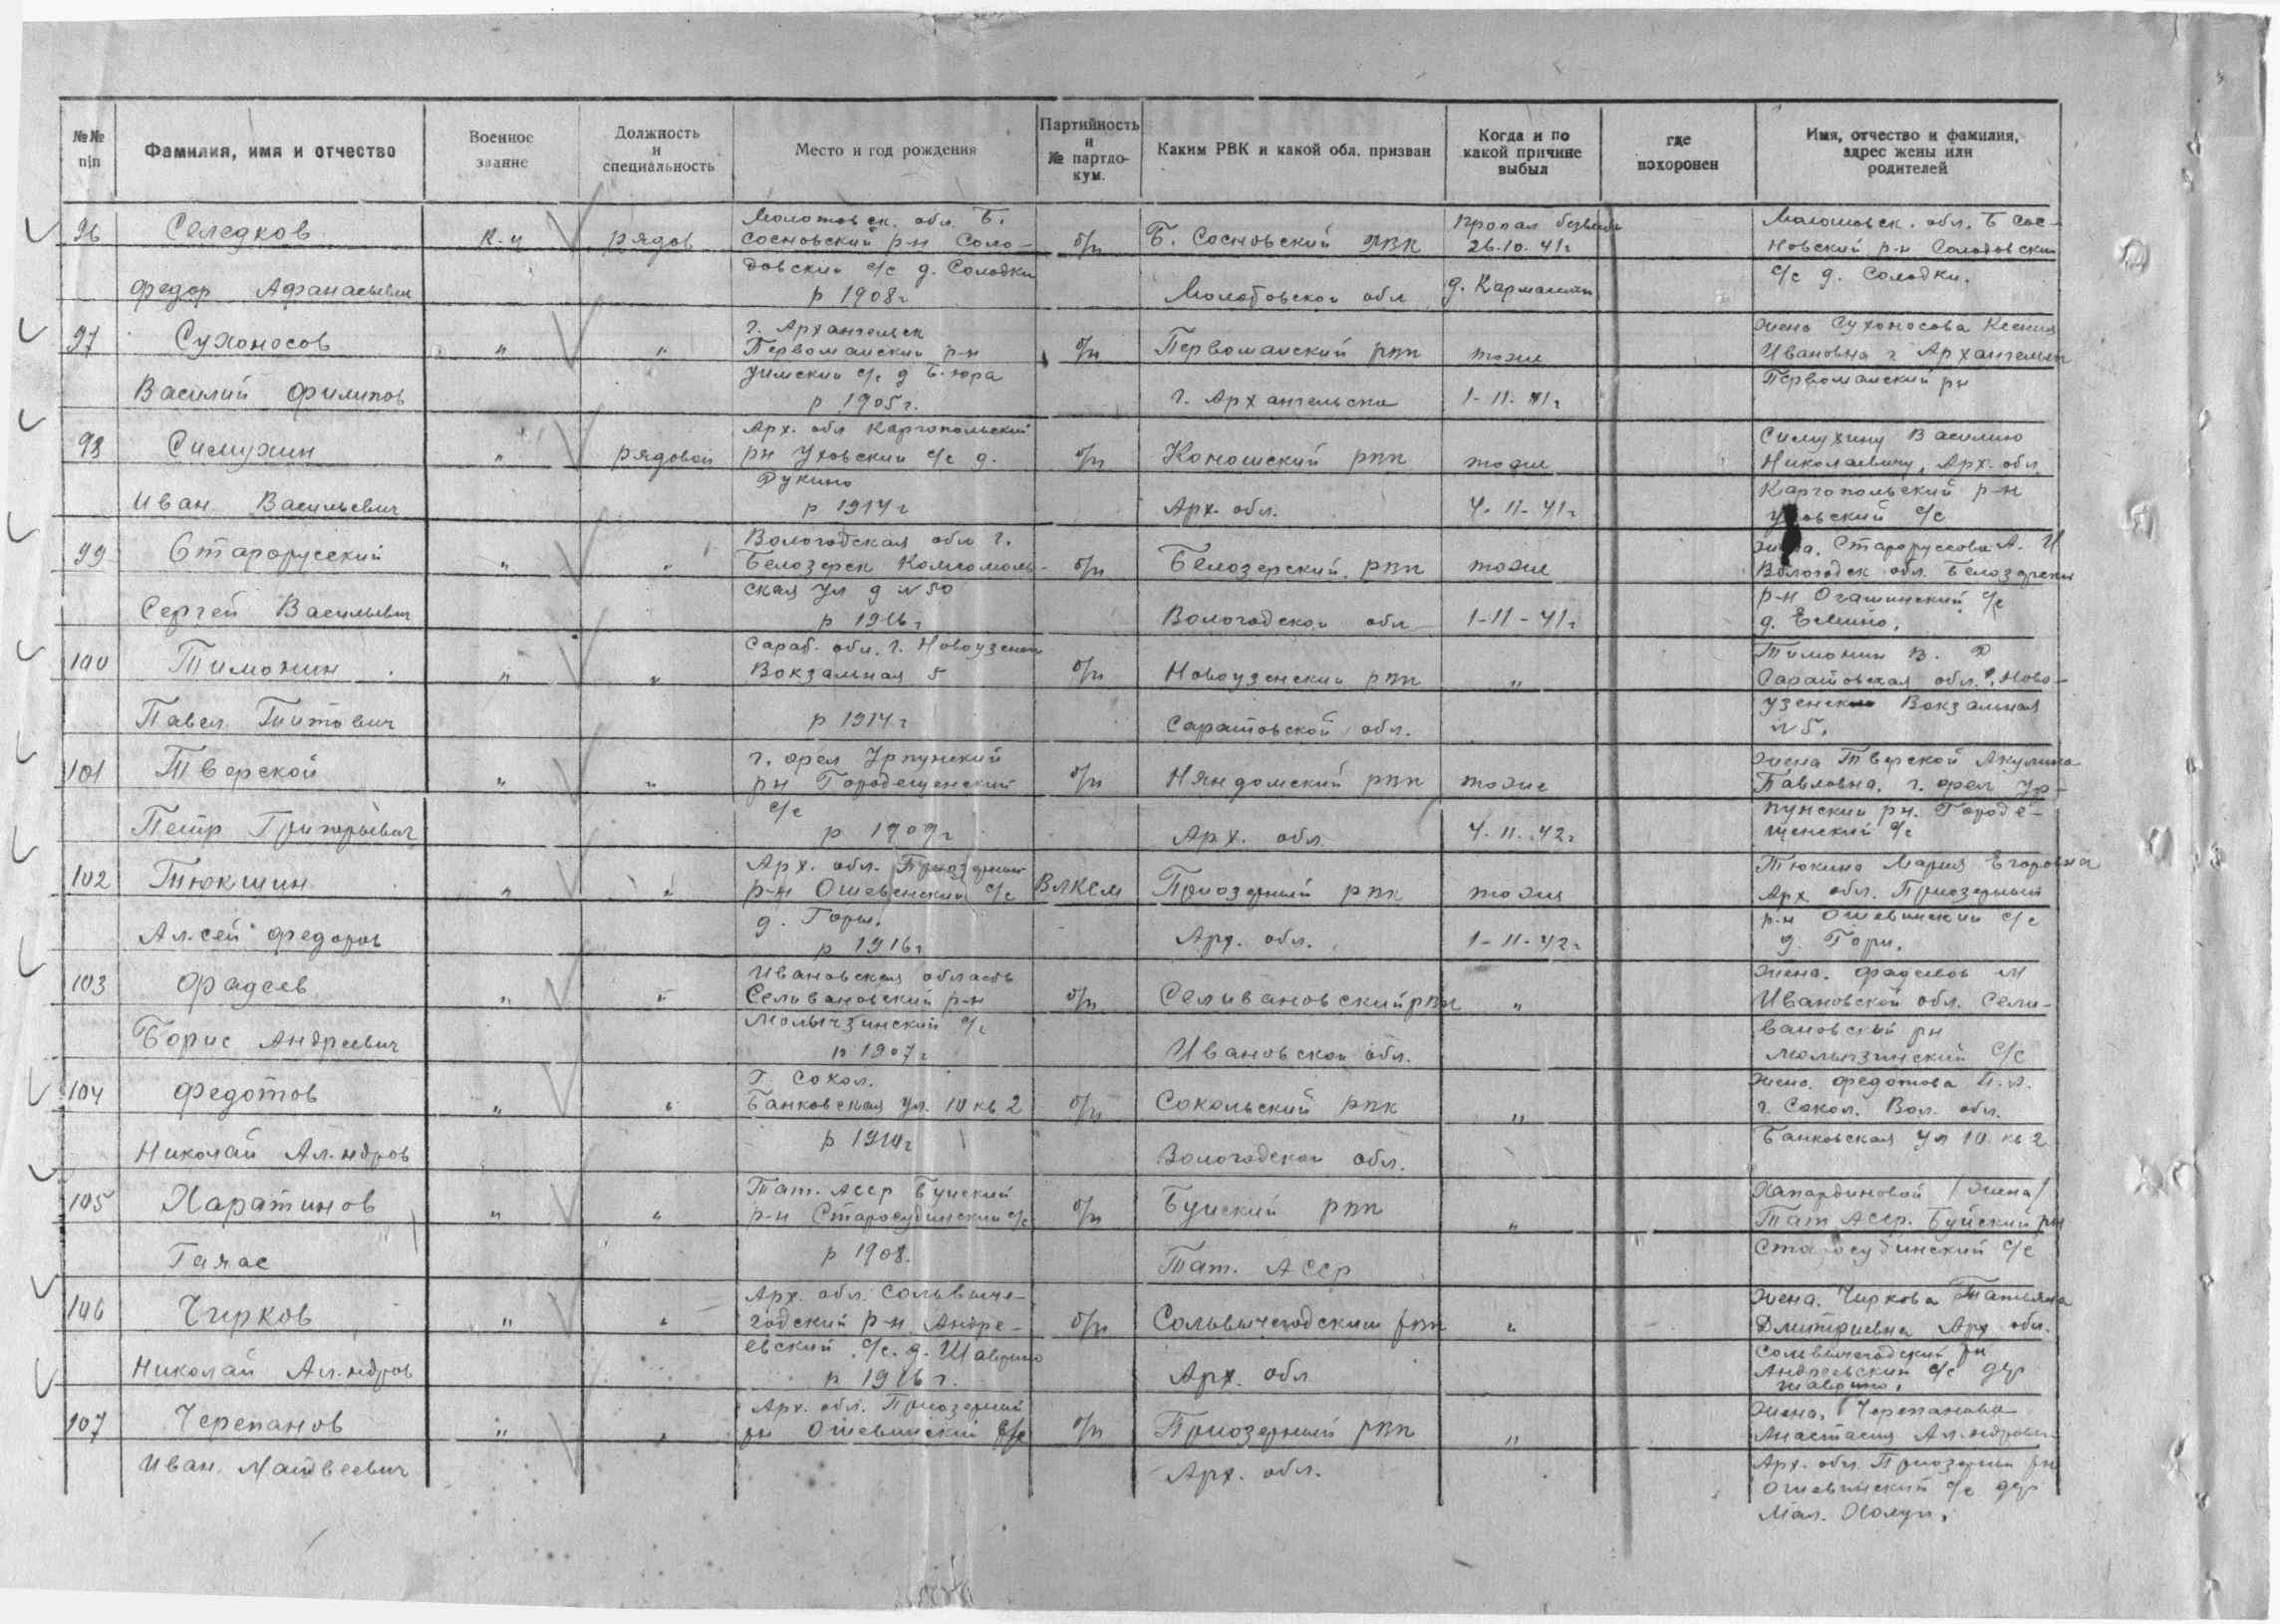 №№ п|п
Фамилия, имя и отчество
Военное звание
Должность и специальность
Место и год рождения
Партийность и № партдокум.
Каким РВК и какой обл. призван
Когда и по какой причине выбыл
где похоронен
Имя, отчество и фамилия, адрес жены или родителей
96
Селедков
Федор Афанасьевич
к-ц
рядов
Молотовск. обл. Б.
Сосновский р-н Соло-
довский с/с д. Солодки
р 1908г
б/п
Б. Сосновский рвк
Молотовской обл
Пропал
26.10.41г
Молотовск. обл. Б Сос-
новский р-н Солодовский
с/с д. Солодки.
97
Сухоносов
Василий Филипов
"
"
г. Архангельск
Первомайский р-н
Уимский с/с д Б.-юра
р 1905г.
б/п
Первомайский рвк
г. Архангельска
тоже
1-11-41г
жена Сухоносова Ксения
Ивановна г Архангельск
Первомайский рн
98
Силухин
Иван Васильевич
"
рядовой
Арх. обл Каргопольский
рн Уховский с/с д.
р 1914г
б/п
Коношский рвк
Арх. обл.
тоже
4-11-41г
Силухину Василию
Николаевичу, Арх. обл.
Каргопольский р-н
с/с
99
Старорусский
Сергей Васильевич
"
"
Вологодская обл г.
Белозерск Комсомоль-
ская ул д №50
р 1916г
б/п
Белозерский рвк
Вологодской обл
тоже
1-11-41г
А. И
Вологодск обл. Белозерский
р-н с/с
д.
100
Тимонин
Павел Титович
"
"
Сарат. обл. г. Новоузенск
Вокзальная 5
р 1914г
б/п
Новоузенский рвк
Саратовской обл.
"
Тимонин В. Ф
Саратовская обл. г. Ново-
узенск Вокзальная
№5.
101
Тверской
Петр Григорьевич
"
"
г. орел Урпунский
рн Городещенский
с/с
р 1909г
б/п
Няндомский рвк
Арх. обл
тоже
4.11.42г
жена Тверской Акулина
Павловна, г. орел Ур-
пунский рн. Городе-
щенский с/с
102
Тюкшин
Ал.сей Федоров
"
"
Арх. обл. Приозерный
р-н Ошевенский с/с
д. Горы.
р 1916г
ВЛКСМ
Приозерный рвк
Арх. обл.
тоже
1-11-42г
Тюкина Мария Егоровна
Арх обл. Приозерный
р-н Ошевинский с/с
д. Гори.
103
Фадеев
Борис Андреевич
"
"
Ивановская область
Селивановский р-н
с/с
р 1907г
б/п
Селивановский рвк
Ивановской обл.
"
жена. Фадеевой М
Ивановской обл. Сели-
вановский рн
с/с
104
Федотов
Николай Ал.ндров
"
"
г. Сокол.
Банковская ул. 10 кв 2
р 1910г
б/п
Сокольский рвк
Вологодской обл.
"
жена. Федотова
г. Сокол. Вол. обл.
Банковская ул 10 кв 2
105
Харатинов
"
"
Тат. АССР Буиский
р-н Старосудинский с/с
р 1908.
б/п
Буиский рвк
Тат. АССР
"
/жена/
Тат АССР. Буйский рн
Старосудинский с/с
106
Чирков
Николай Ал.ндров
"
"
Арх. обл. Сольвыче-
годский р-н Андре-
евский с/с. д.
р 1916г.
б/п
Сольвычегодский рвк
Арх. обл
"
жена. Чиркова Татьяна
Дмитриевна Арх обл.
Сольвычегодский рн
Андреевский с/с дер
107
Черепанов
Иван Матвеевич
"
"
Арх. обл. Приозерный
рн Ошевинский с/с
б/п
Приозерный рвк
Арх. обл.
"
жена. Черепанова
Анастасия Ал.ндровн
Арх. обл. Приозерный рн
Ошевинский с/с дер
Мал. Холуи.